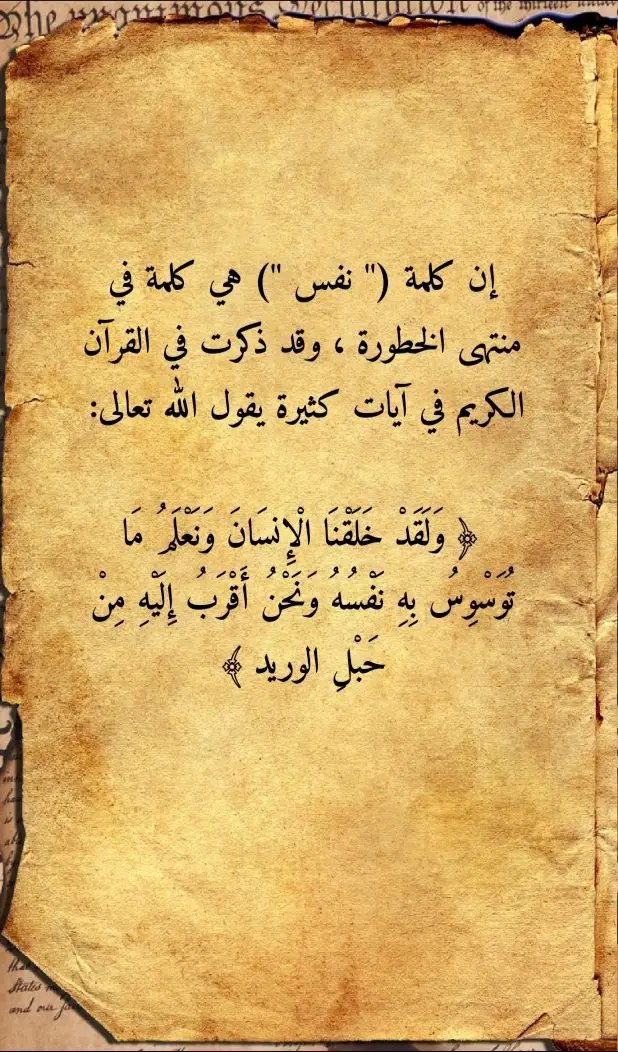 The unanimous Declaration of the thirteen united
إن كلمة (" نفس ") هي كلمة في
منتهى الخطورة ، وقد ذكرت في القرآن
الكريم في آيات كثيرة يقول الله تعالى:
﴿ وَلَقَدْ خَلَقْنَا الْإِنسَانَ وَنَعْلَمُ مَا
تُوَسْوِسُ بِهِ نَفْسُهُ وَنَحْنُ أَقْرَبُ إِلَيْهِ مِنْ
حَبْلِ الوريد ﴾
that
States
and our